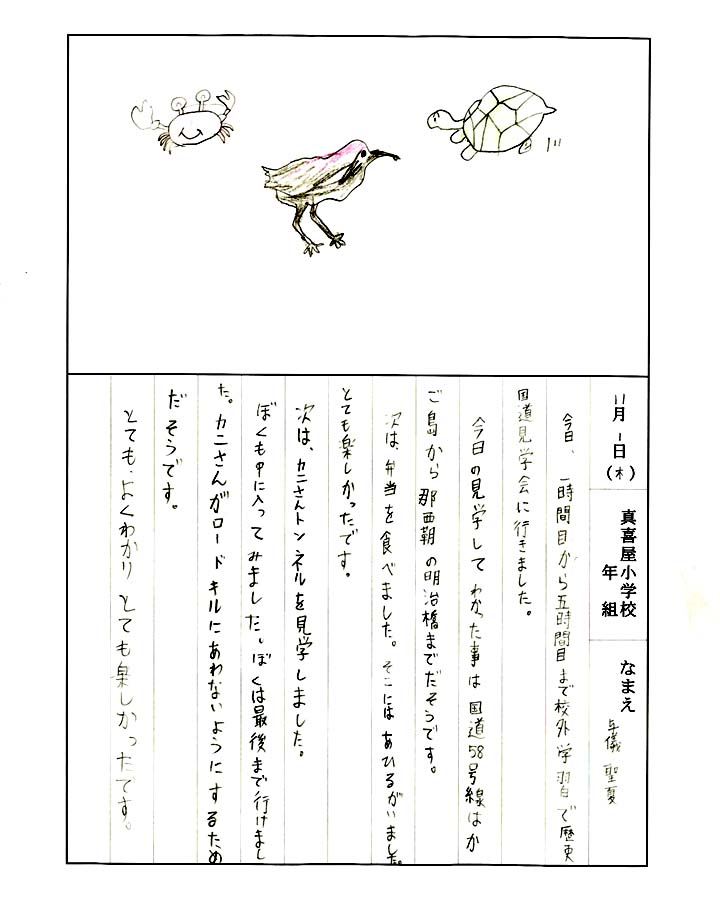 11月1日(木)
真喜屋小学校
年 組
なまえ 与儀 聖夏
今日、一時間目から五時間目まで校外学習で歴史
国道見学会に行きました。
今日の見学してわかった事は国道58号線はか
ご島から那覇の明治橋までだそうです。
次は、弁当を食べました。そこにはあひるがいました。
とても楽しかったです。
次は、カニさんトンネルを見学しました。
ぼくも中に入ってみました。ぼくは最後まで行けまし
た。カニさんがロードキルにあわないようにするため
だそうです。
とても、よくわかりとても楽しかったです。